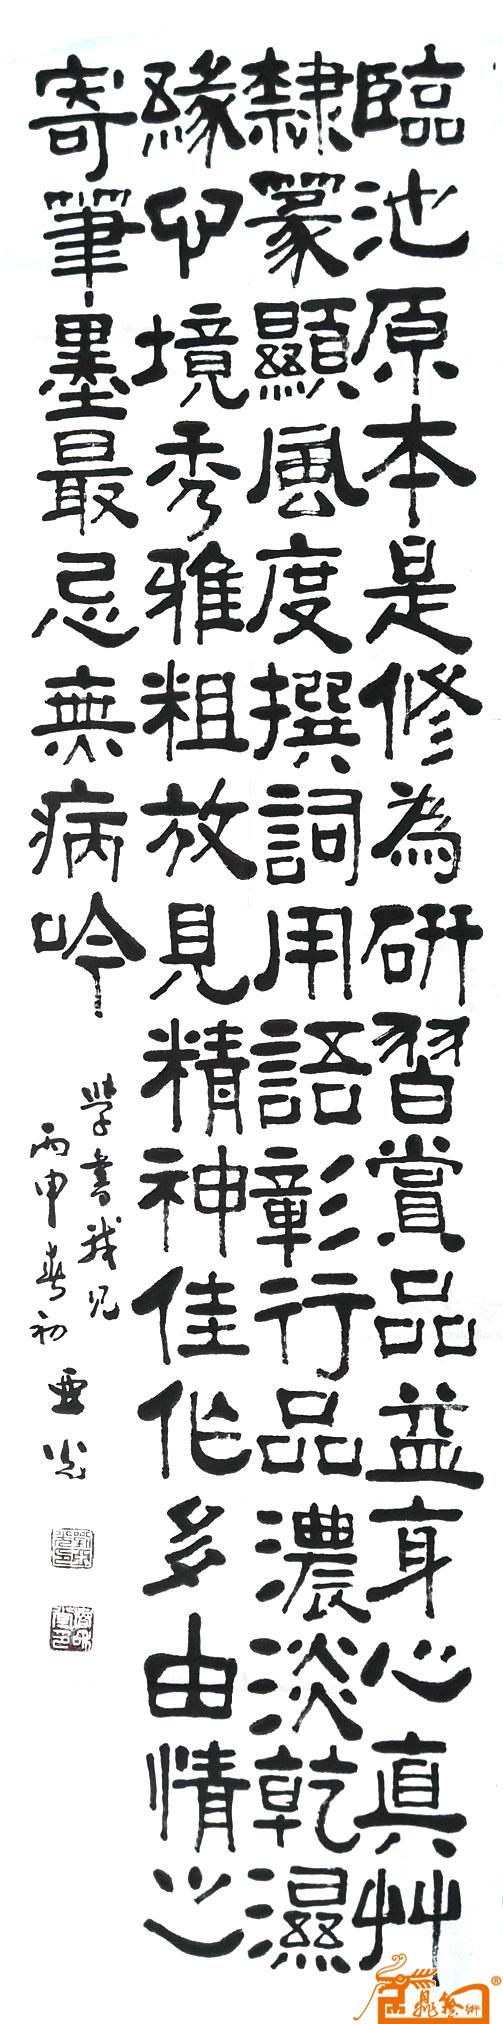 臨池原本是修為研習賞品益身心真艸
隸篆顯風度撰詞用語彰行品濃淡乾濕
緣心境秀雅粗放見精神佳作多由情之
寄筆墨最忌無病吟
學書我見
丙申春初
亞光